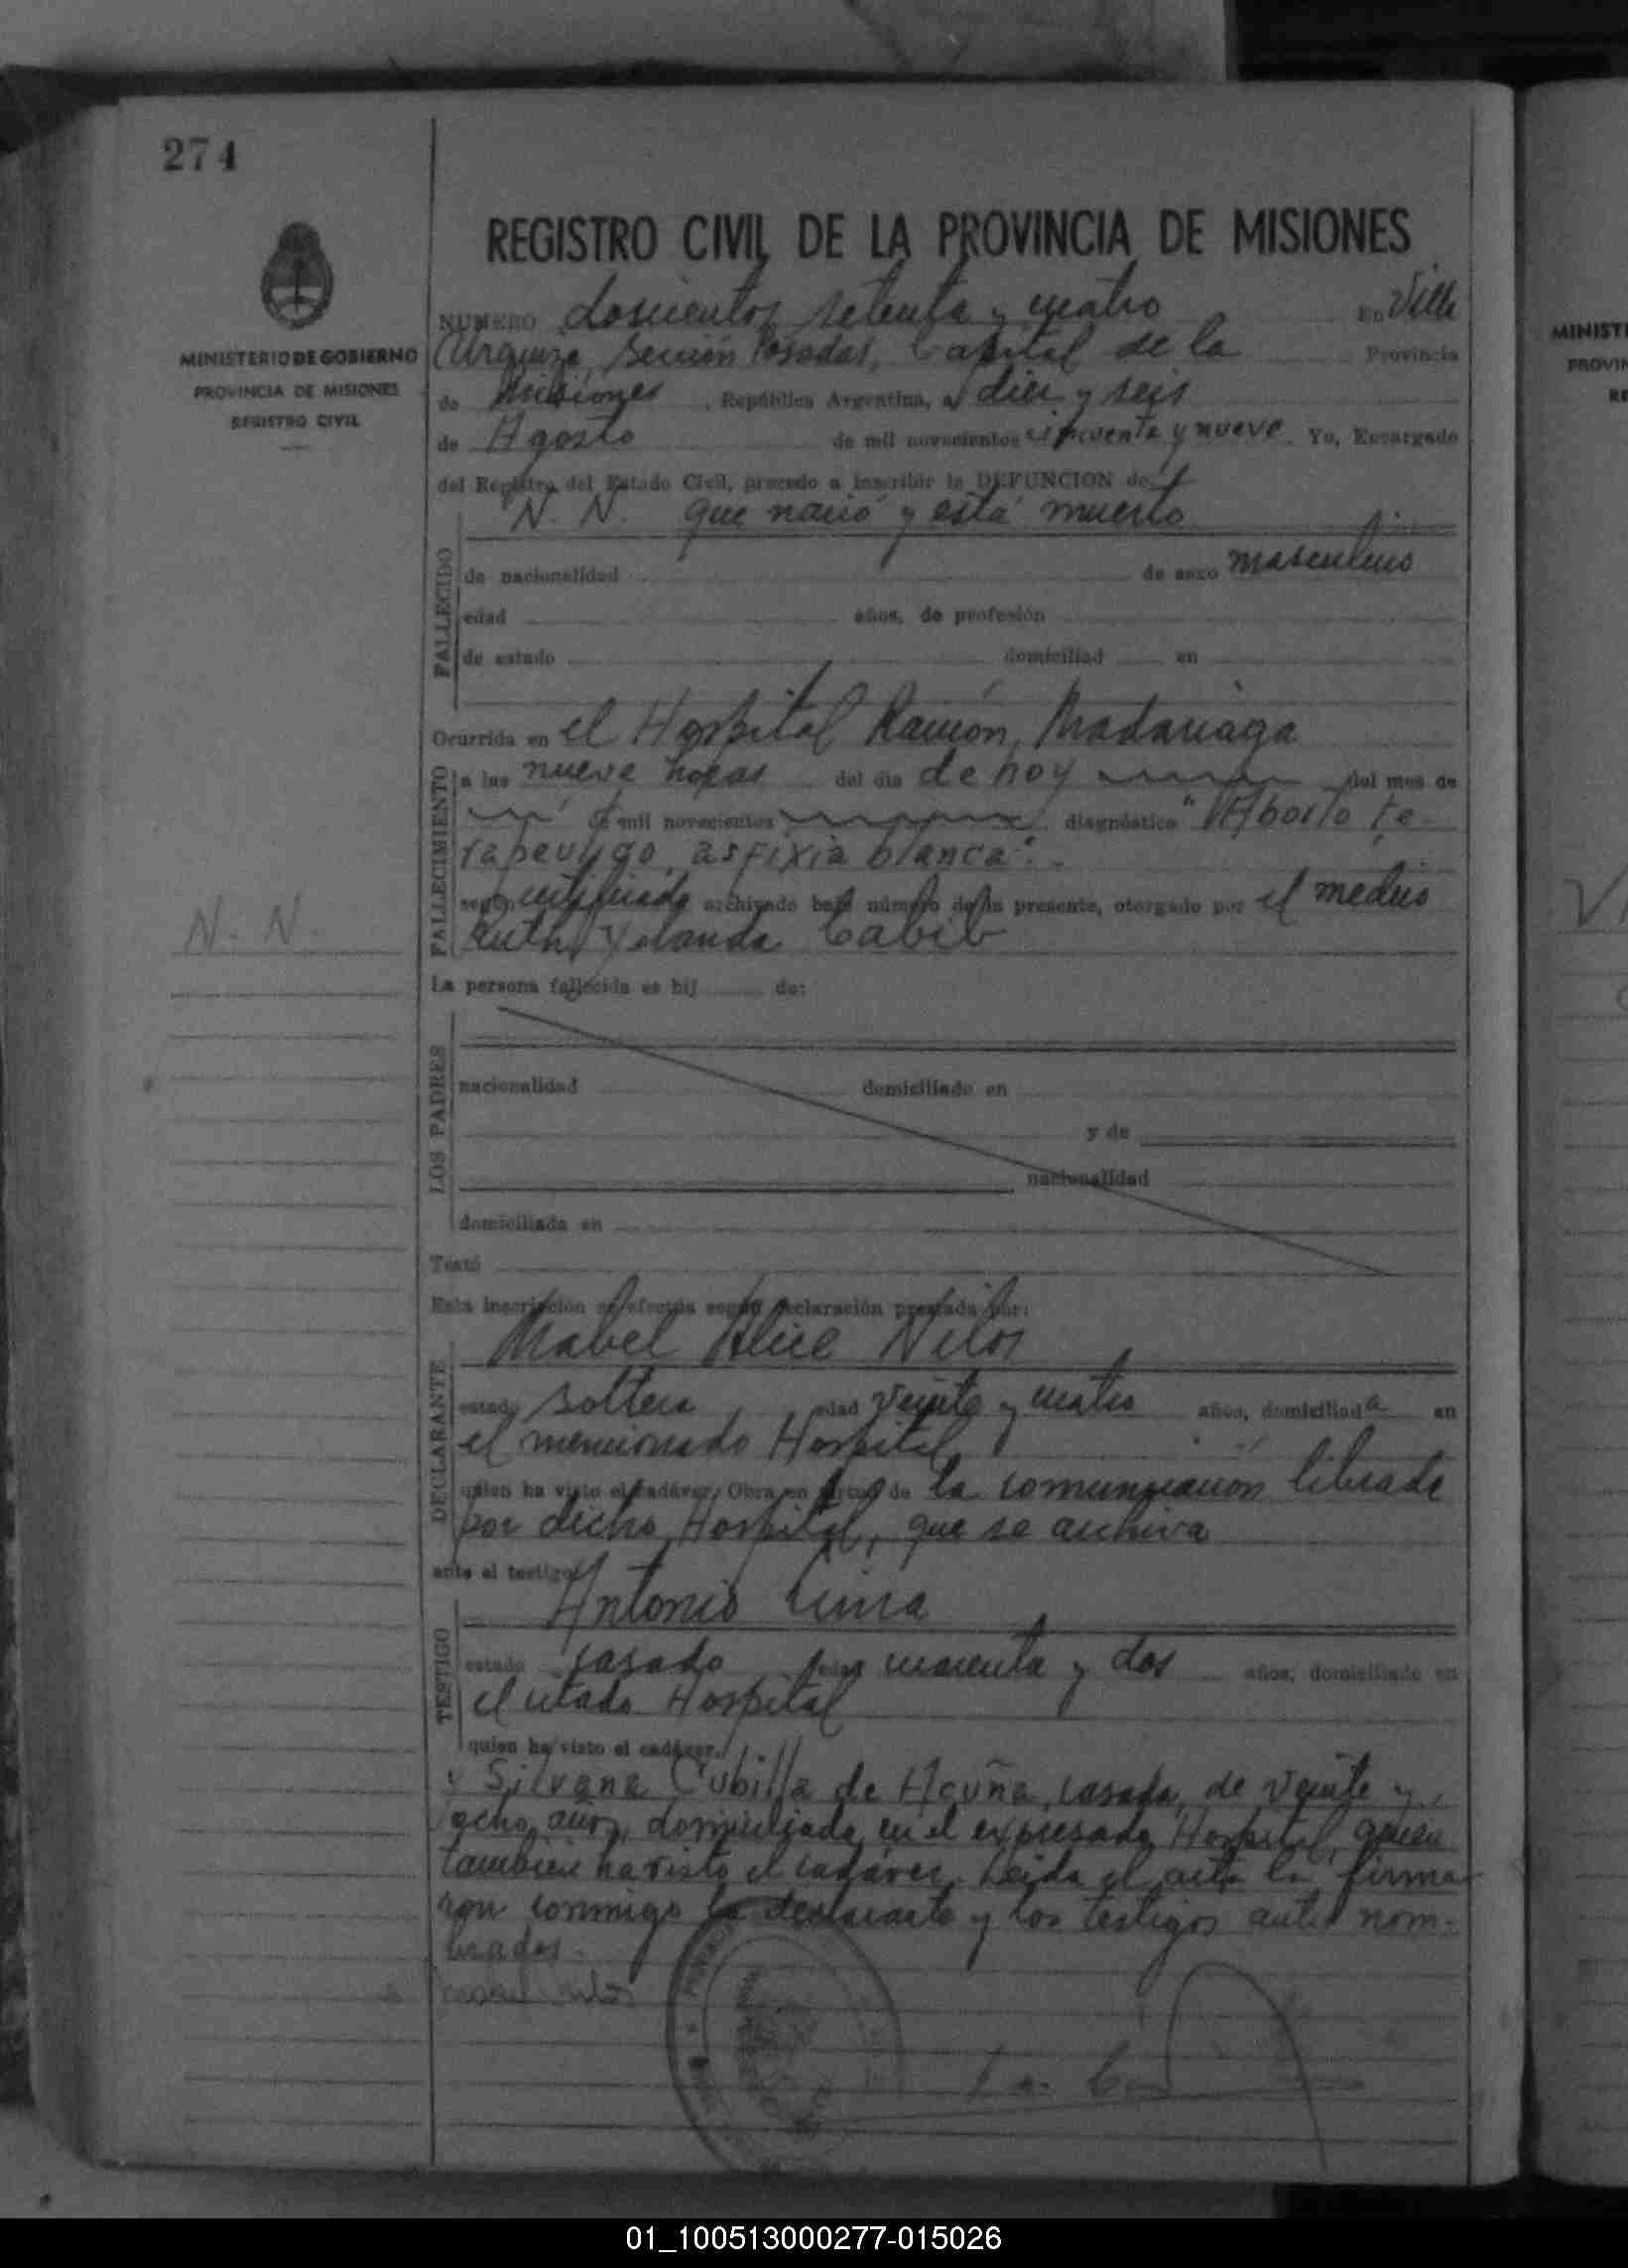 274
REGISTRO CIVIL DE LA PROVINCIA DE MISIONES
MINISTERIO DE GOBIERNO
PROVINCIA DE MISIONES
REGISTRO CIVIL
NUMERO doscientos setenta y cuatro En Villa
Urquiza, Sección Posadas, Capital de la Provincia
de Misiones, República Argentina, a diez y seis
de Agosto de mil novecientos cincuenta y nueve. Yo, Encargado
del Registro del Estado Civil, procedo a inscribir la DEFUNCION de:
N. N. que nació y está muerto
FALLECIDO
de nacionalidad de sexo masculino
edad años, de profesión
de estado domiciliad en
Ocurrida en el Hospital Ramón Madariaga
FALLECIMIENTO
a las nueve horas del día de hoy del mes de
de mil novecientos diagnóstico "Aborto te-
rapeutigo, asfixia blanca".-
según certificado archivado bajo número de la presente, otorgado por el medico
Ruth Yolanda Cabib
N. N.
La persona fallecida es hij de:
LOS PADRES
nacionalidad domiciliado en
y de
nacionalidad
domiciliada en
Testó
Esta inscripción se efectúa según declaración prestada por:
Mabel Alice Nelos
DECLARANTE
estado soltera edad veinte y cuatro años, domiciliada en
el mencionado Hospital
quien ha visto el cadáver. Obra en virtud de la comunicación librada
por dicho Hospital, que se archiva
ante el testigo:
Antonio
TESTIGO
estado casado edad cuarenta y dos años, domiciliado en
el citado Hospital
quien ha visto el cadáver.
y Silvana Cubilla de Acuña, casada, de veinte y
ocho años, domiciliada en el expresado Hospital, quien
tambien ha visto el cadáver. Leida el acta la firma-
ron conmigo la declarante y los testigos antes nom-
brados.-
MINIST
PROVIN
RE
01_100513000277-015026